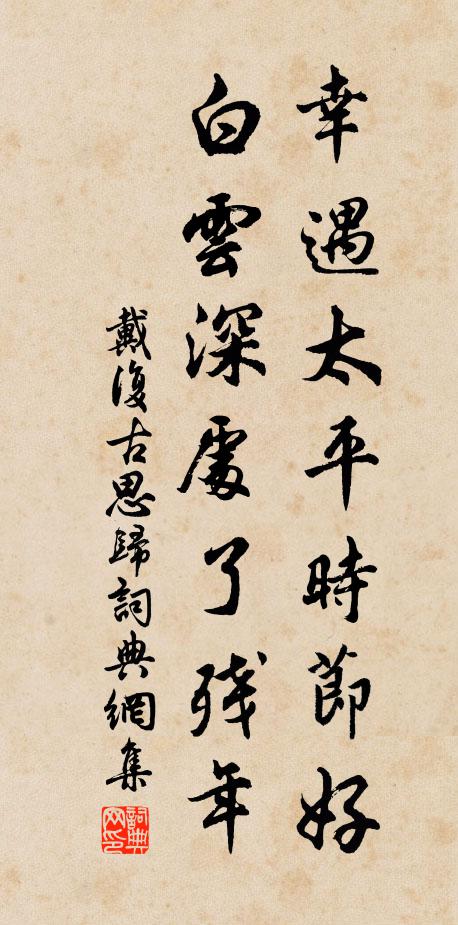 幸遇太平時節好
白雲深處了殘年
戴復古思歸詞典網集
詞典网印